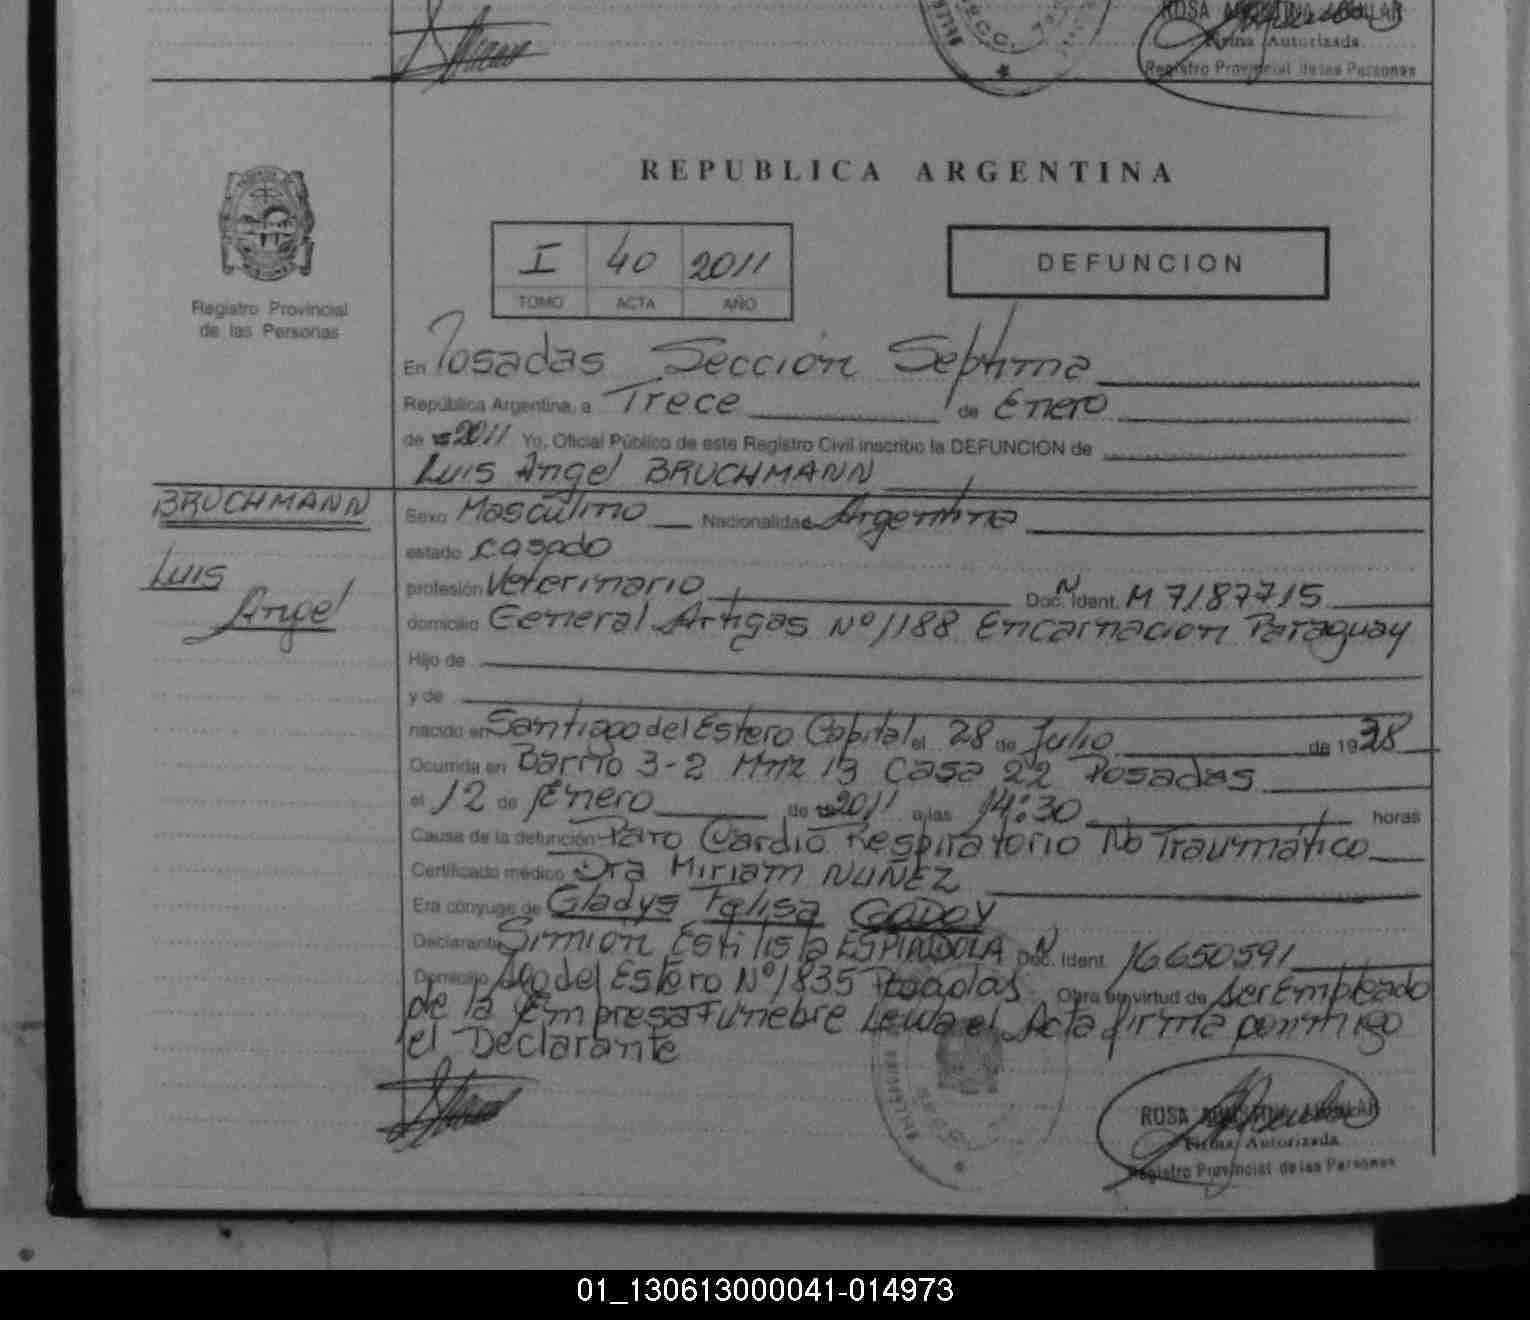 ROSA
Firma Autorizada
Registro Provincial de las Personas
REPUBLICA ARGENTINA
Registro Provincial
de las Personas
I 40 2011
TOMO ACTA AÑO
DEFUNCION
En Posadas Sección Séptima
República Argentina, a Trece de Enero
de 2011 Yo, Oficial Público de este Registro Civil inscribo la DEFUNCION de
Luis Angel BRUCHMANN
BRUCHMANN
Luis
Angel
Sexo Masculino Nacionalidad Argentina
estado casado
profesión Veterinario Doc. N Ident. M 7187715
domicilio General Artigas Nº 1188 Encarnacion Paraguay
Hijo de
y de
nacido en Santiago del Estero Capital el 28 de Julio de 1938
Ocurrida en Barrio 3-2 Mnz 13 Casa 22 Posadas
el 12 de Enero de 2011 a las 14:30 horas
Cause de la defunción Paro Cardio Respiratorio No Traumático
Certificado médico Dra Miriam NUÑEZ
Era cónyuge de Gladys Felisa GODOY
Declarante Simion Estilista ESPINDOLA Doc. N Ident. 16650591
Domicilio Sgo del Estero Nº 1835 Posadas Obra en virtud de Ser Empleado
de la Empresa Funebre Leida el Acta firma conmigo
el Declarante
ROSA
Firma Autorizada
Registro Provincial de las Personas
01_130613000041-014973